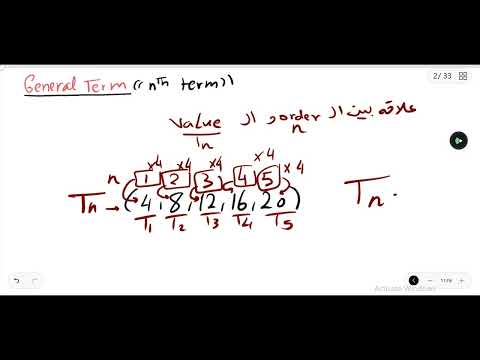 General Term ((nth term))
علاقة بين ال order و ال value
n Tn
×4 ×4 ×4 ×4 ×4
n 1 2 3 4 5
Tn → (4, 8, 12, 16, 20)
T1 T2 T3 T4 T5
Tn
2/33
Activate Windows